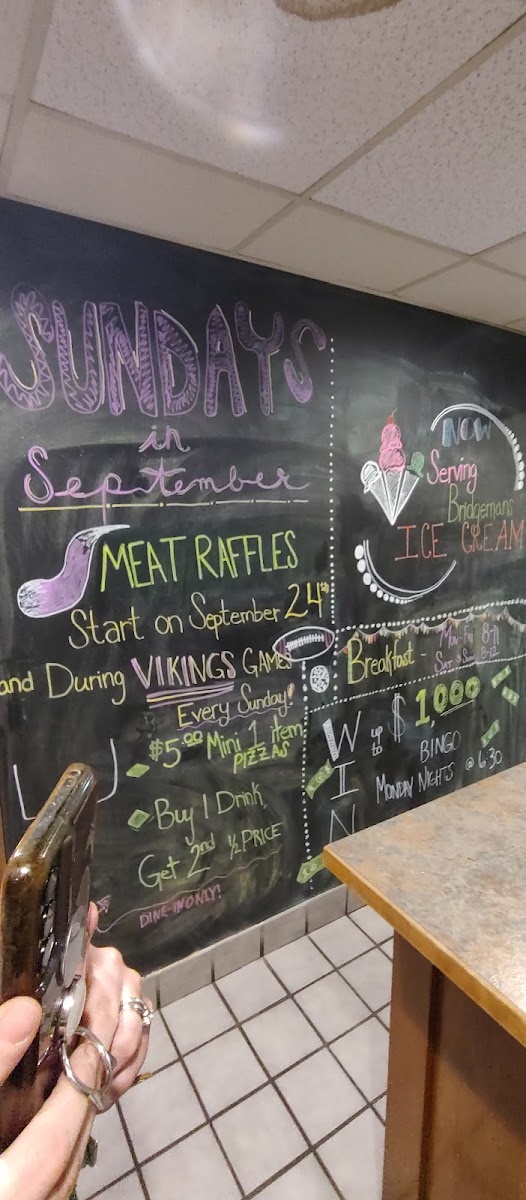 SUNDAYS
in
September
MEAT RAFFLES
Start on September 24th
and During VIKINGS GAMES
Every Sunday!
$5.00 Mini 1 item
PIZZAS
Buy 1 Drink,
Get 2nd 1/2 PRICE
DINE-IN ONLY!
NOW
Serving
Bridgemans
ICE CREAM
Breakfast - Mon-Fri 8-11
Sat & Sun 8-12
WIN
up to $1,000
BINGO
MONDAY NIGHTS @ 6:30